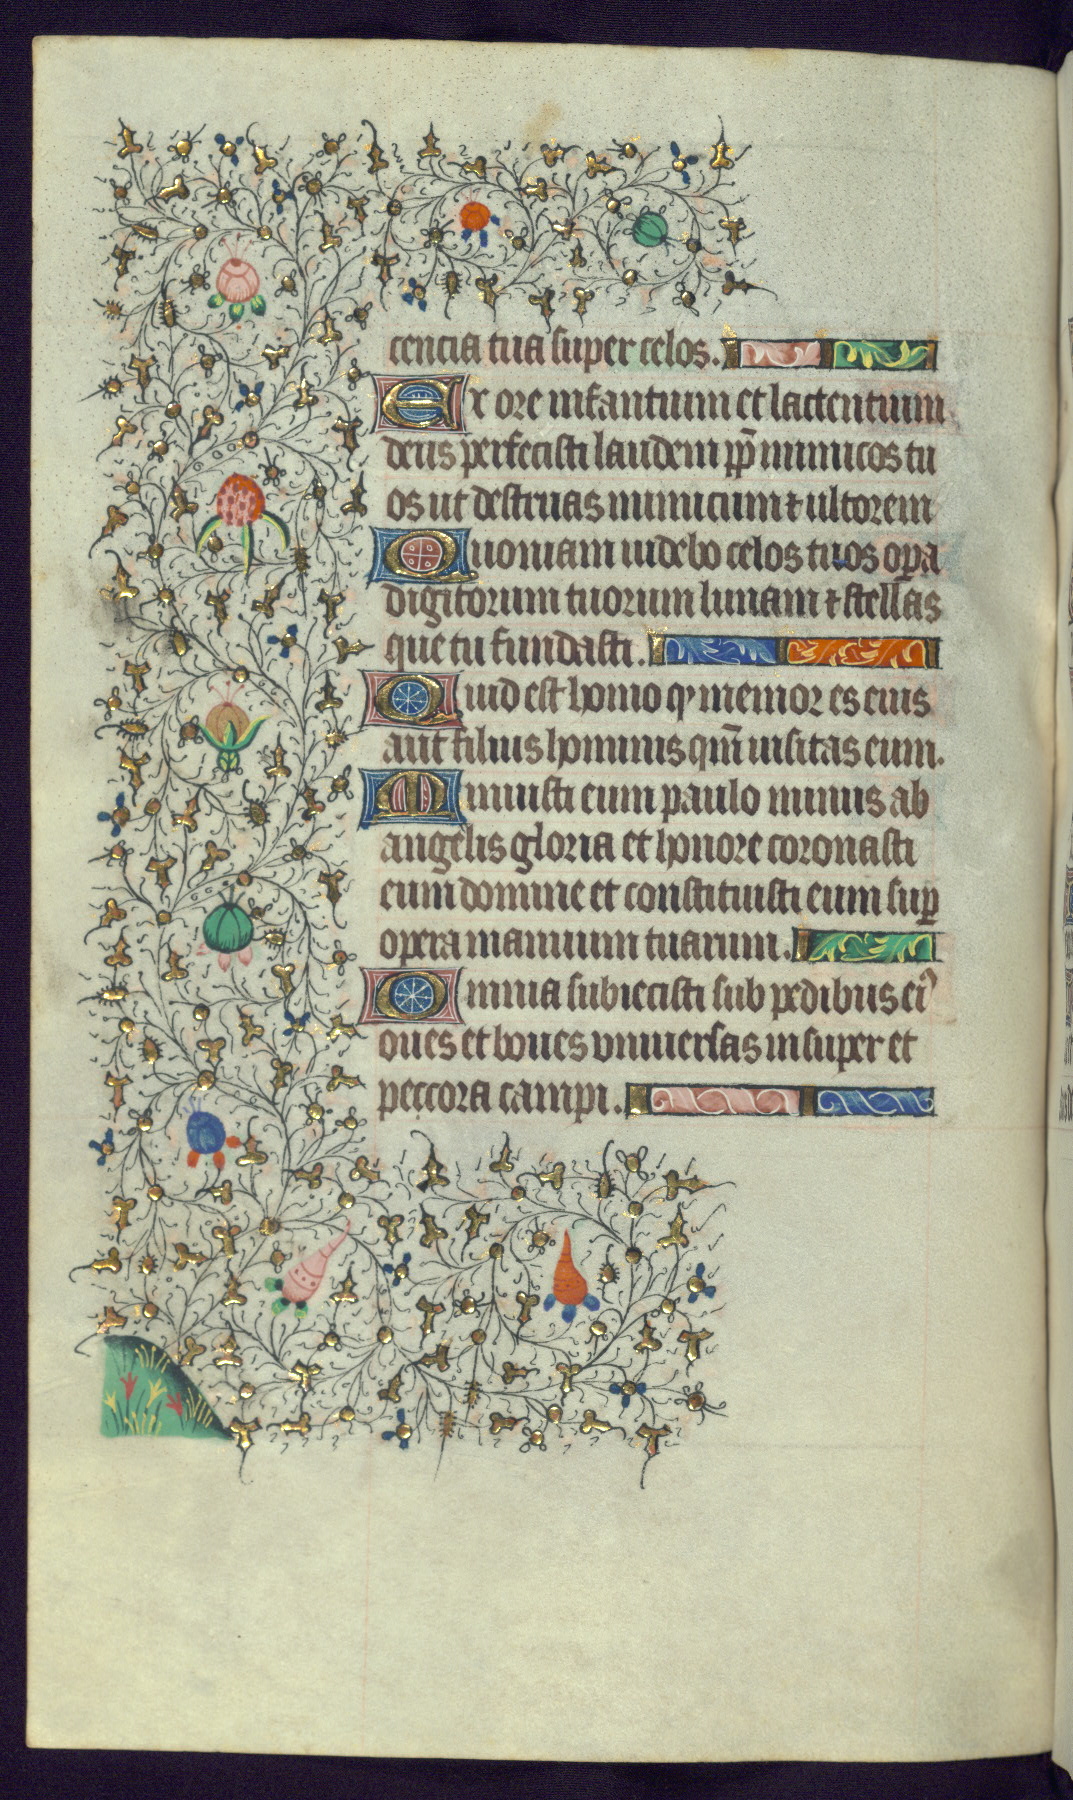 cencia tua super celos.
Ex ore infantium et lactentium
deus perfecisti laudem pp̄ inimicos tu
os ut destruas inimicum ⁊ ultorem
Quoniam uidebo celos tuos oꝑa
digitorum tuorum lunam ⁊ stellas
que tu fundasti.
Quid est homo ꝙ memor es eius
aut filius hominis qm̄ uisitas eum.
Minuisti eum paulo minus ab
angelis gloria et honore coronasti
eum domine et constituisti eum suꝑ
opera manuum tuarum.
Omnia subiecisti sub pedibus eiꝰ
oues et boues vniuersas insuper et
peccora campi.